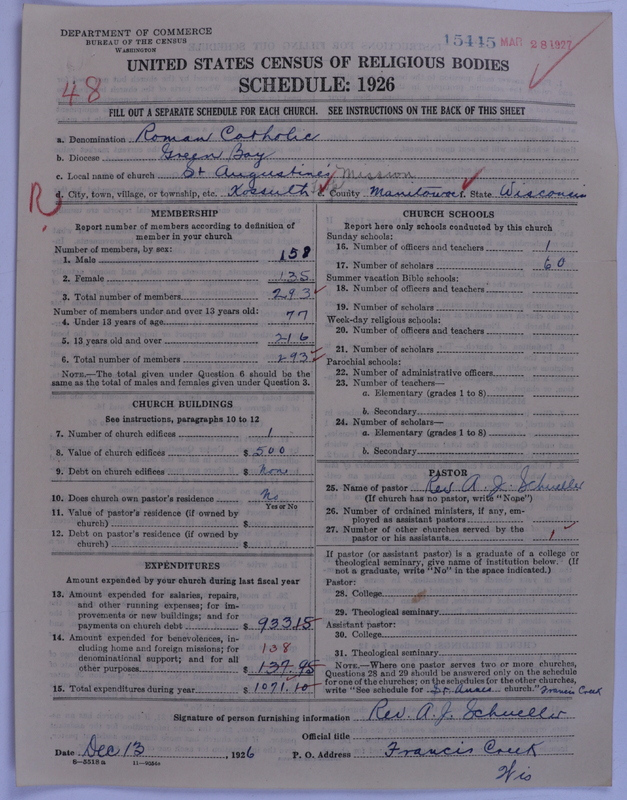 DEPARTMENT OF COMMERCE
BUREAU OF THE CENSUS
WASHINGTON
15445 MAR 28 1927
UNITED STATES CENSUS OF RELIGIOUS BODIES
SCHEDULE: 1926
48
FILL OUT A SEPARATE SCHEDULE FOR EACH CHURCH. SEE INSTRUCTIONS ON THE BACK OF THIS SHEET
a. Denomination Roman Catholic
b. Diocese Green Bay
c. Local name of church St Augustine's Mission
R
d. City, town, village, or township, etc. Kossuth e. County Manitowoc f. State Wisconsin
MEMBERSHIP
Report number of members according to definition of
member in your church
Number of members, by sex:
1. Male 158
2. Female 135
3. Total number of members 293
Number of members under and over 13 years old:
4. Under 13 years of age 77
5. 13 years old and over 216
6. Total number of members 293
NOTE.—The total given under Question 6 should be the
same as the total of males and females given under Question 3.
CHURCH BUILDINGS
See instructions, paragraphs 10 to 12
7. Number of church edifices 1
8. Value of church edifices $ 500
9. Debt on church edifices $ None
10. Does church own pastor's residence No
Yes or No
11. Value of pastor's residence (if owned by
church) $
12. Debt on pastor's residence (if owned by
church) $
EXPENDITURES
Amount expended by your church during last fiscal year
13. Amount expended for salaries, repairs,
and other running expenses; for im-
provements or new buildings; and for
payments on church debt $ 933.15
14. Amount expended for benevolences, in-
cluding home and foreign missions; for
denominational support; and for all
other purposes 138
$ 137.95
15. Total expenditures during year $ 1071.10
CHURCH SCHOOLS
Report here only schools conducted by this church
Sunday schools:
16. Number of officers and teachers 1
17. Number of scholars 60
Summer vacation Bible schools:
18. Number of officers and teachers
19. Number of scholars
Week-day religious schools:
20. Number of officers and teachers
21. Number of scholars
Parochial schools:
22. Number of administrative officers
23. Number of teachers—
a. Elementary (grades 1 to 8)
b. Secondary
24. Number of scholars—
a. Elementary (grades 1 to 8)
b. Secondary
PASTOR
25. Name of pastor Rev A. J. Schueller
(If church has no pastor, write "None")
26. Number of ordained ministers, if any, em-
ployed as assistant pastors
27. Number of other churches served by the
pastor or his assistants 1
If pastor (or assistant pastor) is a graduate of a college or
theological seminary, give name of institution below. (If
not a graduate, write "No" in the space indicated.)
Pastor:
28. College
29. Theological seminary
Assistant pastor:
30. College
31. Theological seminary
NOTE.—Where one pastor serves two or more churches,
Questions 28 and 29 should be answered only on the schedule
for one of the churches; on the schedules for the other churches,
write "See schedule for St. Annes church." Francis Creek
Signature of person furnishing information Rev. A. J. Schueller
Official title
Date Dec 13, 1926 P. O. Address Francis Creek
Wis
8—5518 a 11—9056a